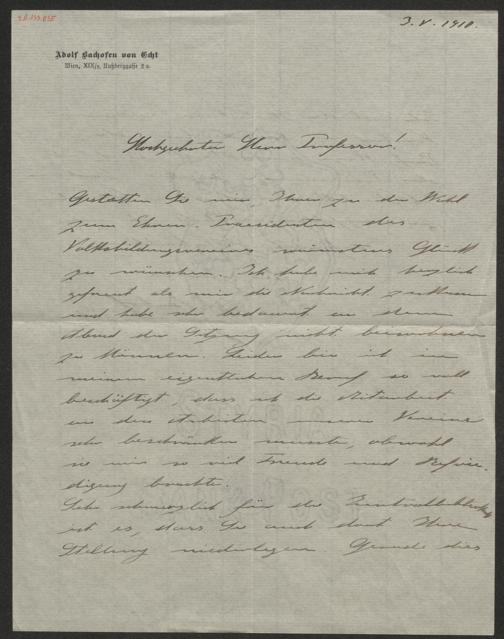 3. V. 1910.
Adolf Bachofen von Echt
Wien, XIX/2, Nußberggasse 2 a.
Hochgeehrter Herr Professor!
Gestatten Sie mir, Ihnen zu der Wahl
zum Ehren-Praesidenten des
Volksbildungsvereines wärmstens Glück
zu wünschen. Ich habe mich herzlich
gefreut als mir die Nachricht zukam
und habe sehr bedauert an dem
Abend der Sitzung nicht beiwohnen
zu können. Leider bin ich in
meinem eigentlichen Beruf so voll
beschäftigt, dass ich die Mitarbeit
an den Arbeiten unseres Vereins
sehr beschränken musste, obwohl
sie mir so viel Freude und Befrie-
digung brachte.
Sehr schmerzlich für die Zentralbibliothek
ist es, dass Sie auch dort Ihre
Stellung niederlegen. Gerade dies